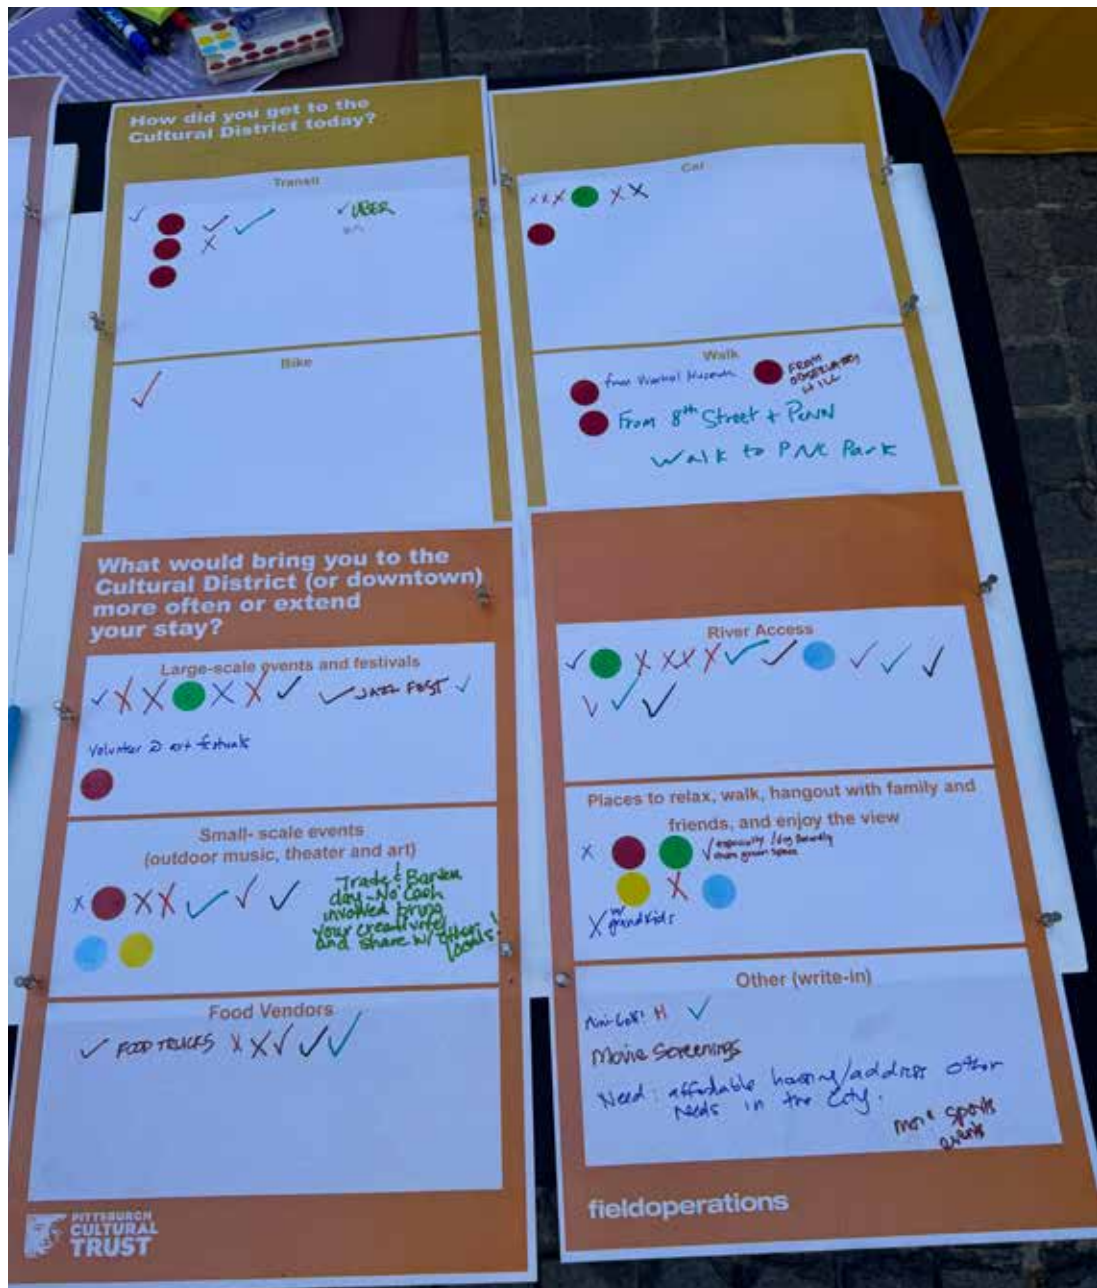 How did you get to the
Cultural District today?
Transit
UBER
Car
Bike
Walk
from Warhol Museum
FROM
OBSERVATORY
HILL
From 8th Street + PENN
Walk to PNC Park
What would bring you to the
Cultural District (or downtown)
more often or extend
your stay?
Large-scale events and festivals
JAZZ FEST
Volunteer @ art festivals
Small- scale events
(outdoor music, theater and art)
Trade & Barter
day - No Cash
involved bring
your creativity
and share w/ other
locals!
Food Vendors
FOOD TRUCKS
PITTSBURGH
CULTURAL
TRUST
River Access
Places to relax, walk, hangout with family and
friends, and enjoy the view
especially dog friendly
green space
w/
grandkids
Other (write-in)
Mini-Golf!
Movie Screenings
Need: affordable housing/address other
needs in the City.
more sports
events
fieldoperations